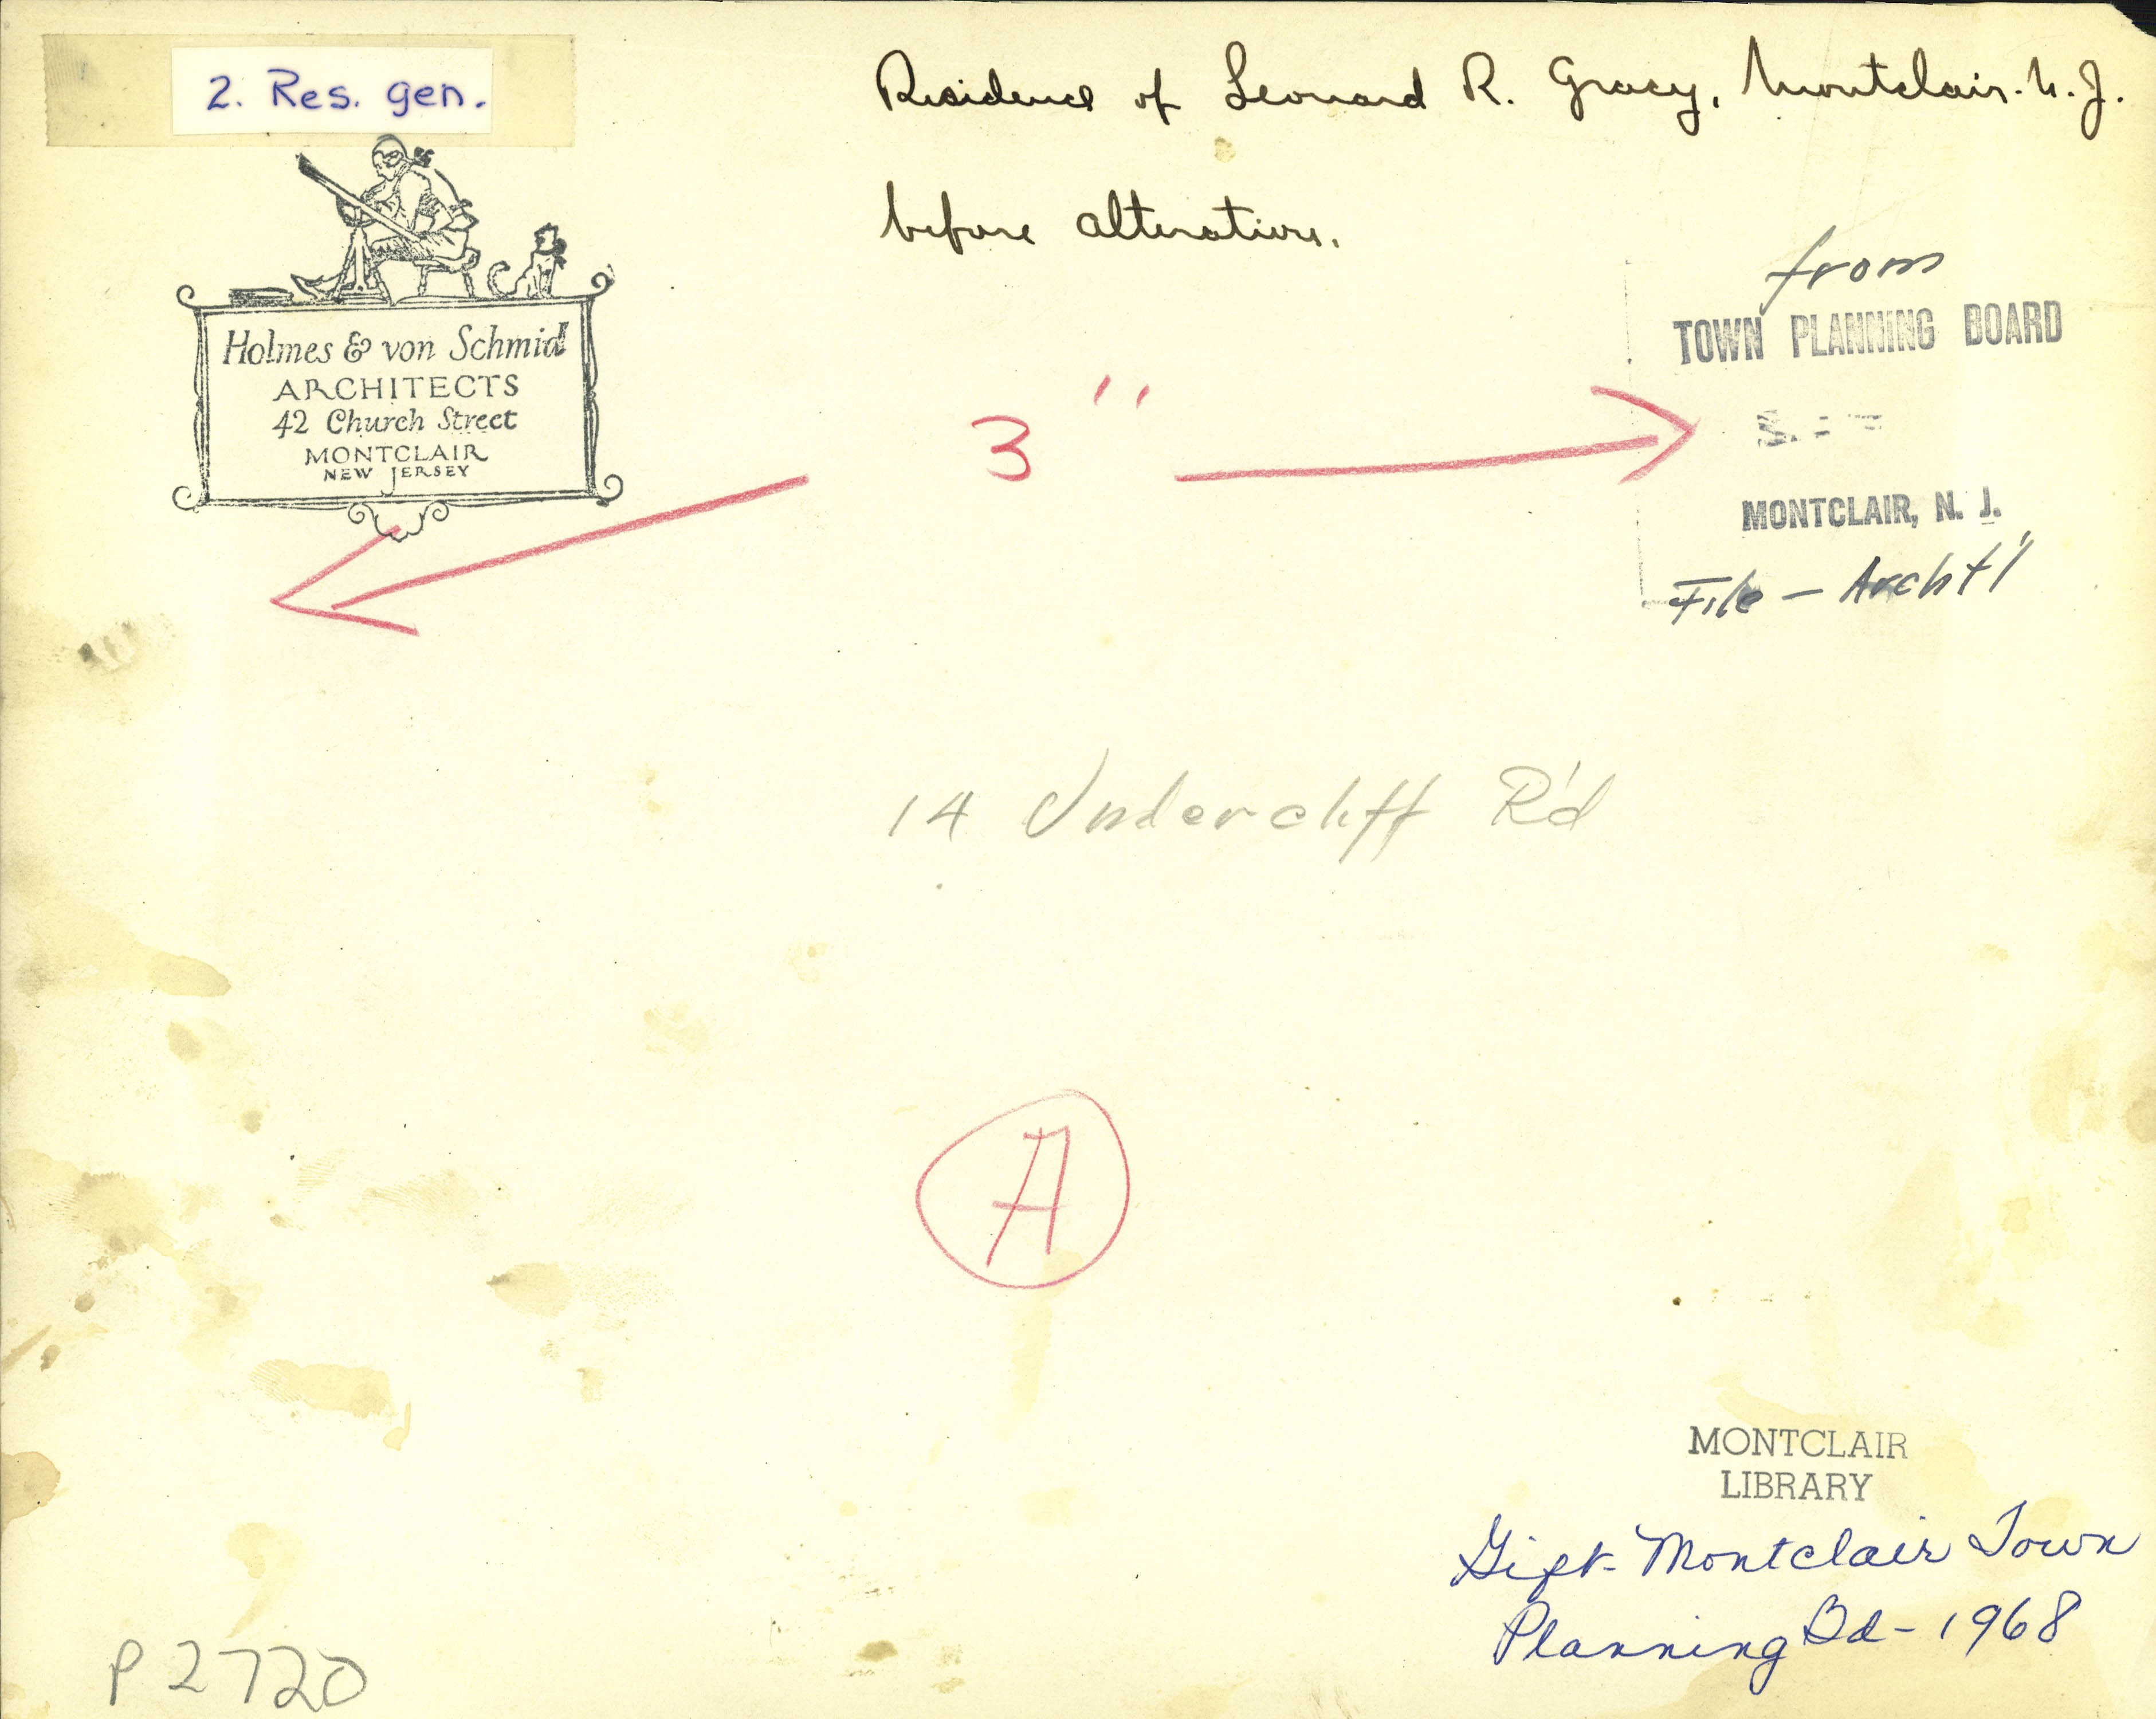 2. Res. gen.
Residence of Leonard R. Gracy, Montclair. N. J.
before alterations.
Holmes & von Schmid
ARCHITECTS
42 Church Street
MONTCLAIR
NEW JERSEY
from
TOWN PLANNING BOARD
MONTCLAIR, N. J.
File - Archt'l
3"
14 Undercliff R'd
A
MONTCLAIR
LIBRARY
Gift - Montclair Town
Planning Bd - 1968
P2720